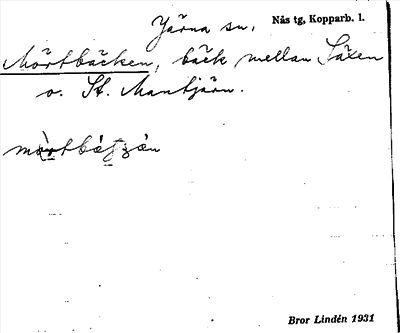 Järna sn, Nås tg, Kopparb. l.
Mörtbäcken, bäck mellan Säxen
o. St. Mantjärn.
Bror Lindén 1931